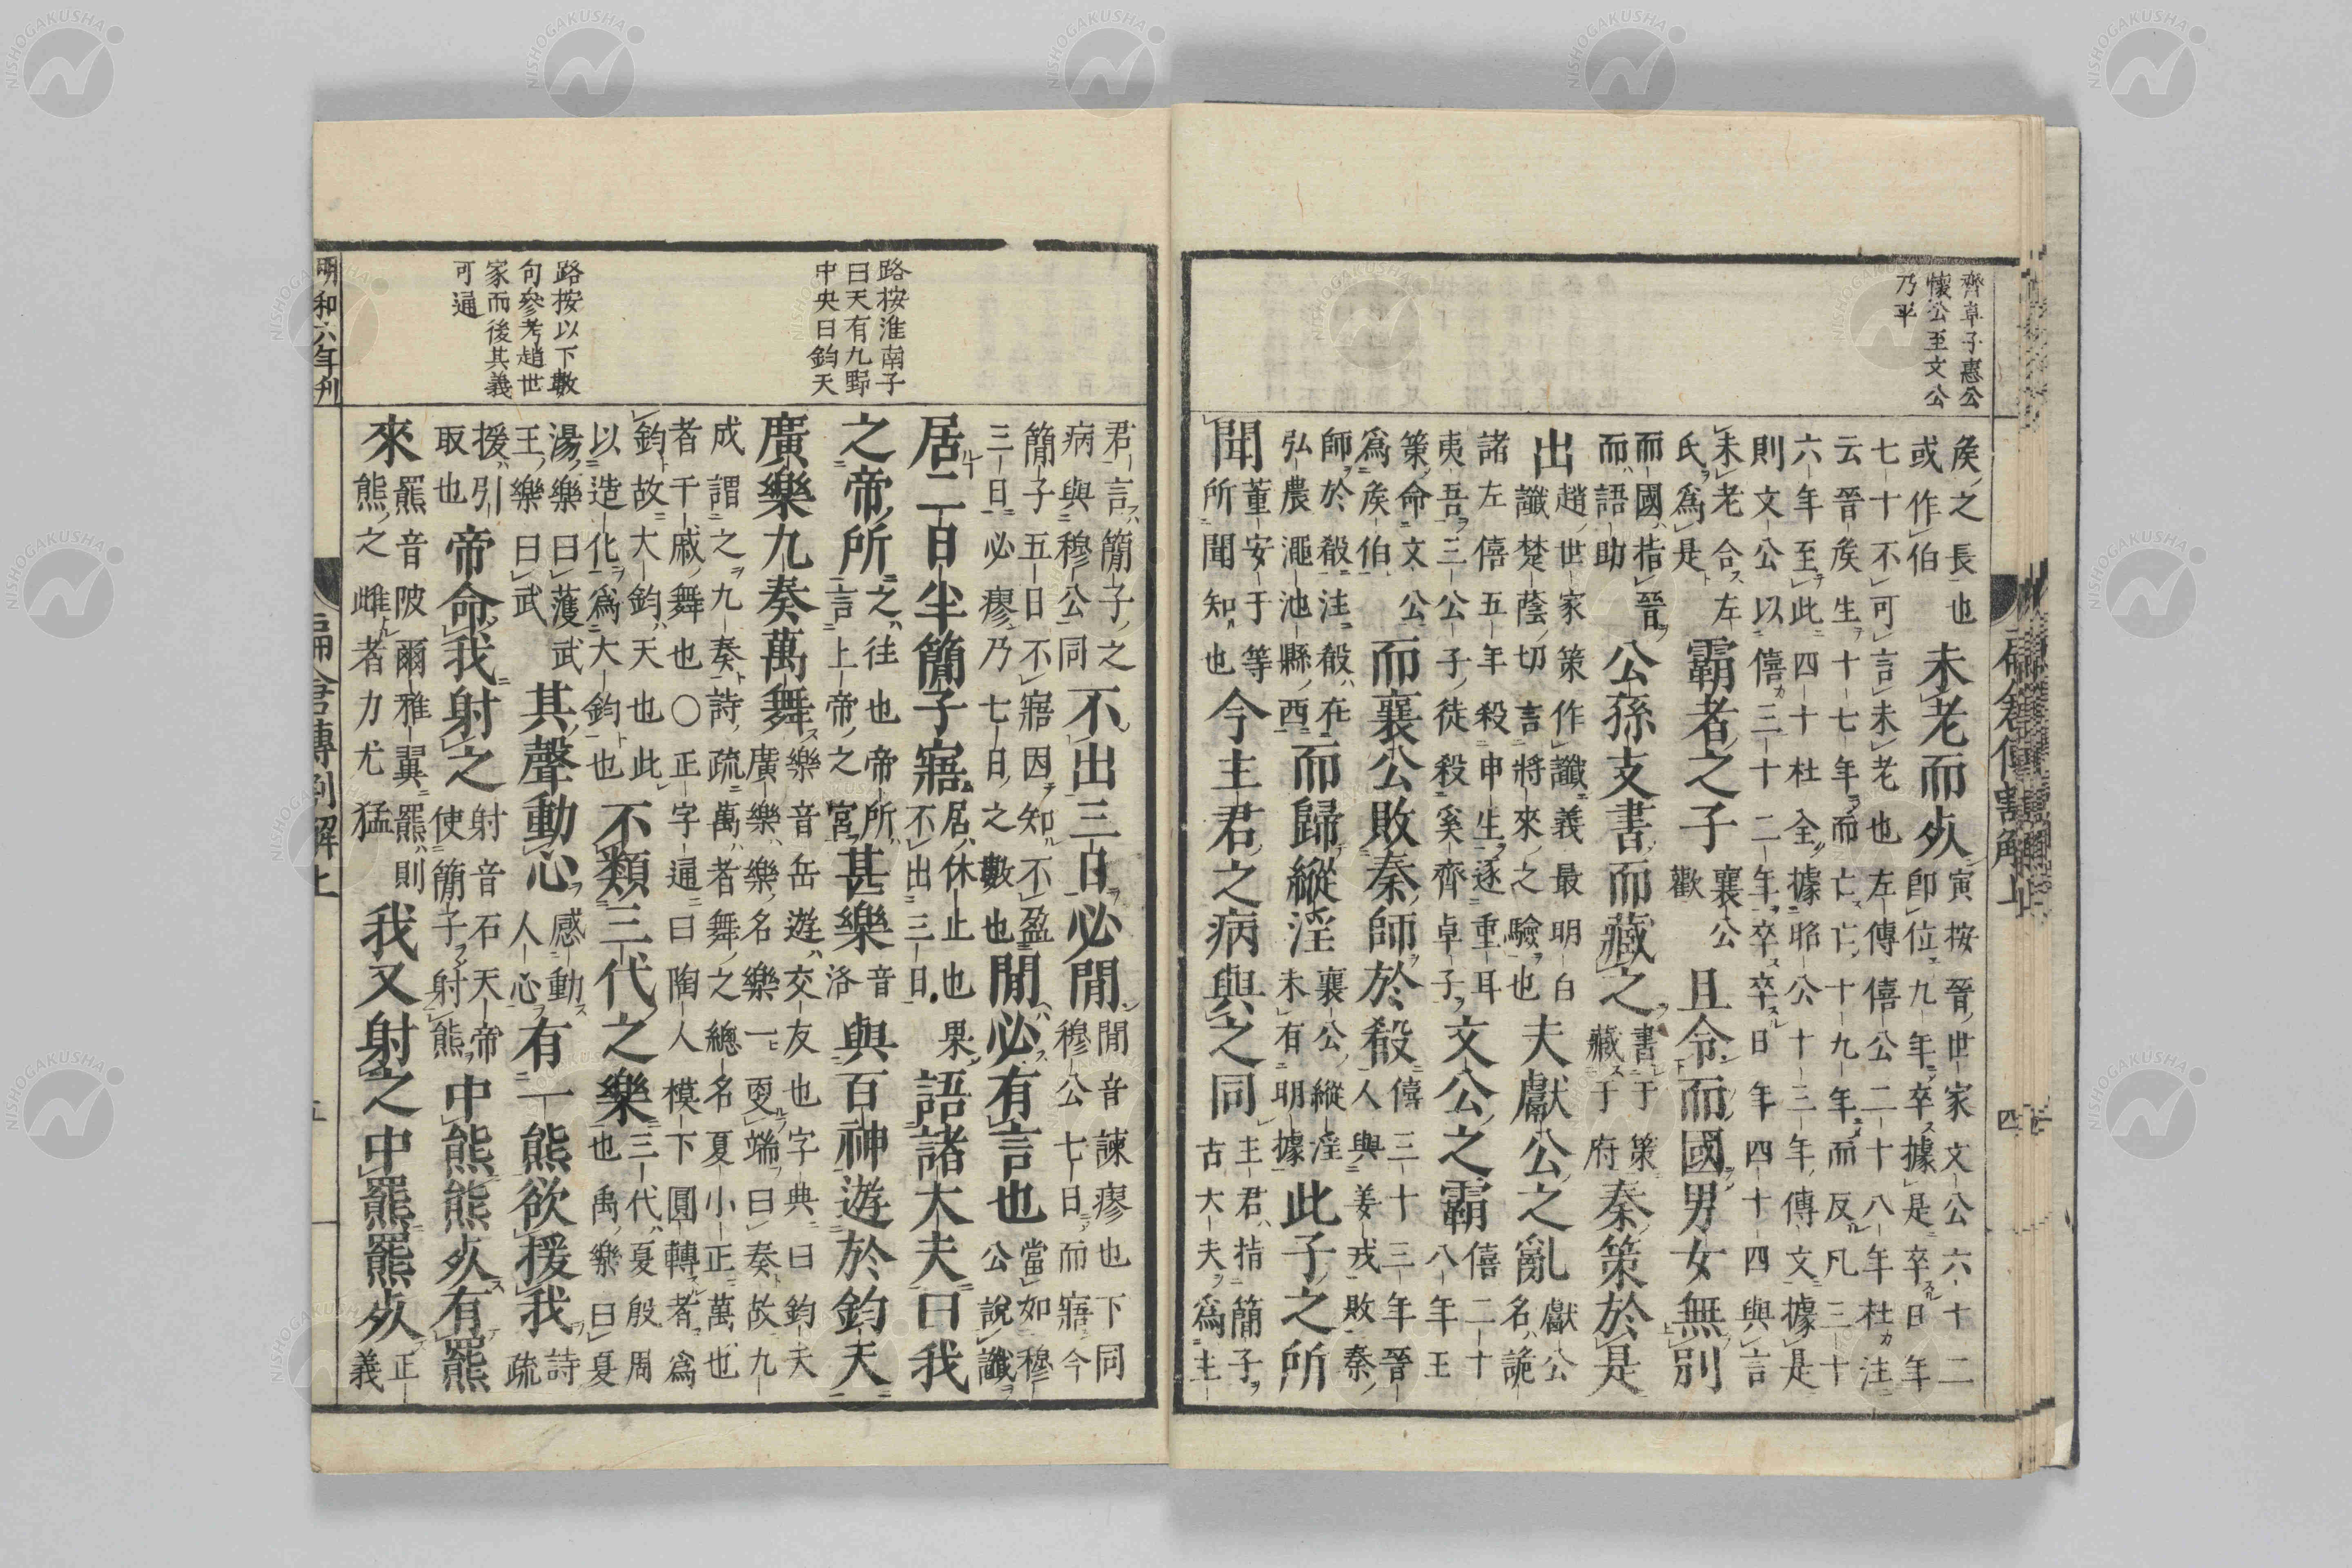 齊卓子惠公
懷公至文公
乃平
矦之長也
或作伯
未老而死
寅按晉世家文公六十二
卽位九年卒據是卒日年
七十不可言未老也左傳僖公二十八年杜注
云晉矦生十七年而亡亡十九年而反凡三十
六年至此四十杜全據昭公十三年傳文據是
則文公以僖三十二年卒卒日年四十四與言
未老合左
氏爲是
霸者之子
襄公
歡
且令而國男女無別
而國指晉
而語助
公孫支書而藏之
書于策
藏于府
秦策於是
出
趙世家策作讖義最明白
讖楚蔭切言將來之驗也
夫獻公之亂
獻公
名詭
諸左僖五年殺申生逐重耳
夷吾三公子徒殺奚齊卓子
文公之霸
僖二十
八年王
策命文公
爲矦伯
而襄公敗秦師於殽
僖三十三年晉
人與姜戎敗秦
師於殽注殽在
弘農澠池縣西
而歸縱淫
襄公縱淫
未有明據
此子之所
聞
董安于等
所聞知也
今主君之病與之同
主君指簡子
古大夫爲主
四
路按淮南子
曰天有九野
中央曰鈞天
路按以下數
句參考趙世
家而後其義
可通
君言簡子之
病與穆公同
不出三日必閒
閒音諫瘳也下同
穆公七日而寤今
簡子五日不寤因知不盈
三日必瘳乃七日之數也
閒必有言也
當如穆
公說讖
居二日半簡子寤
居休止也果
不出三日
語諸大夫曰我
之帝所
之往也帝所
言上帝之宮
甚樂
音
洛
與百神遊於鈞天
廣樂九奏萬舞
樂音岳遊交友也字典曰鈞天
廣樂樂名樂一更端曰奏故九
成謂之九奏詩疏萬者舞之總名夏小正萬也
者干戚舞也〇正字通曰陶人模下圓轉者爲
鈞故大鈞天也此
以造化爲大鈞也
不類三代之樂
三代夏殷周
也禹樂曰夏
湯樂曰濩武
王樂曰武
其聲動心
感動
人心
有一熊欲援我
詩
疏
援引
取也
帝命我射之
射音石天帝
使簡子射熊
中熊熊死有羆
來
羆音陂爾雅翼羆則
熊之雌者力尤猛
我又射之中羆羆死
正
義
明和六年刊
扁倉傳割解上
五